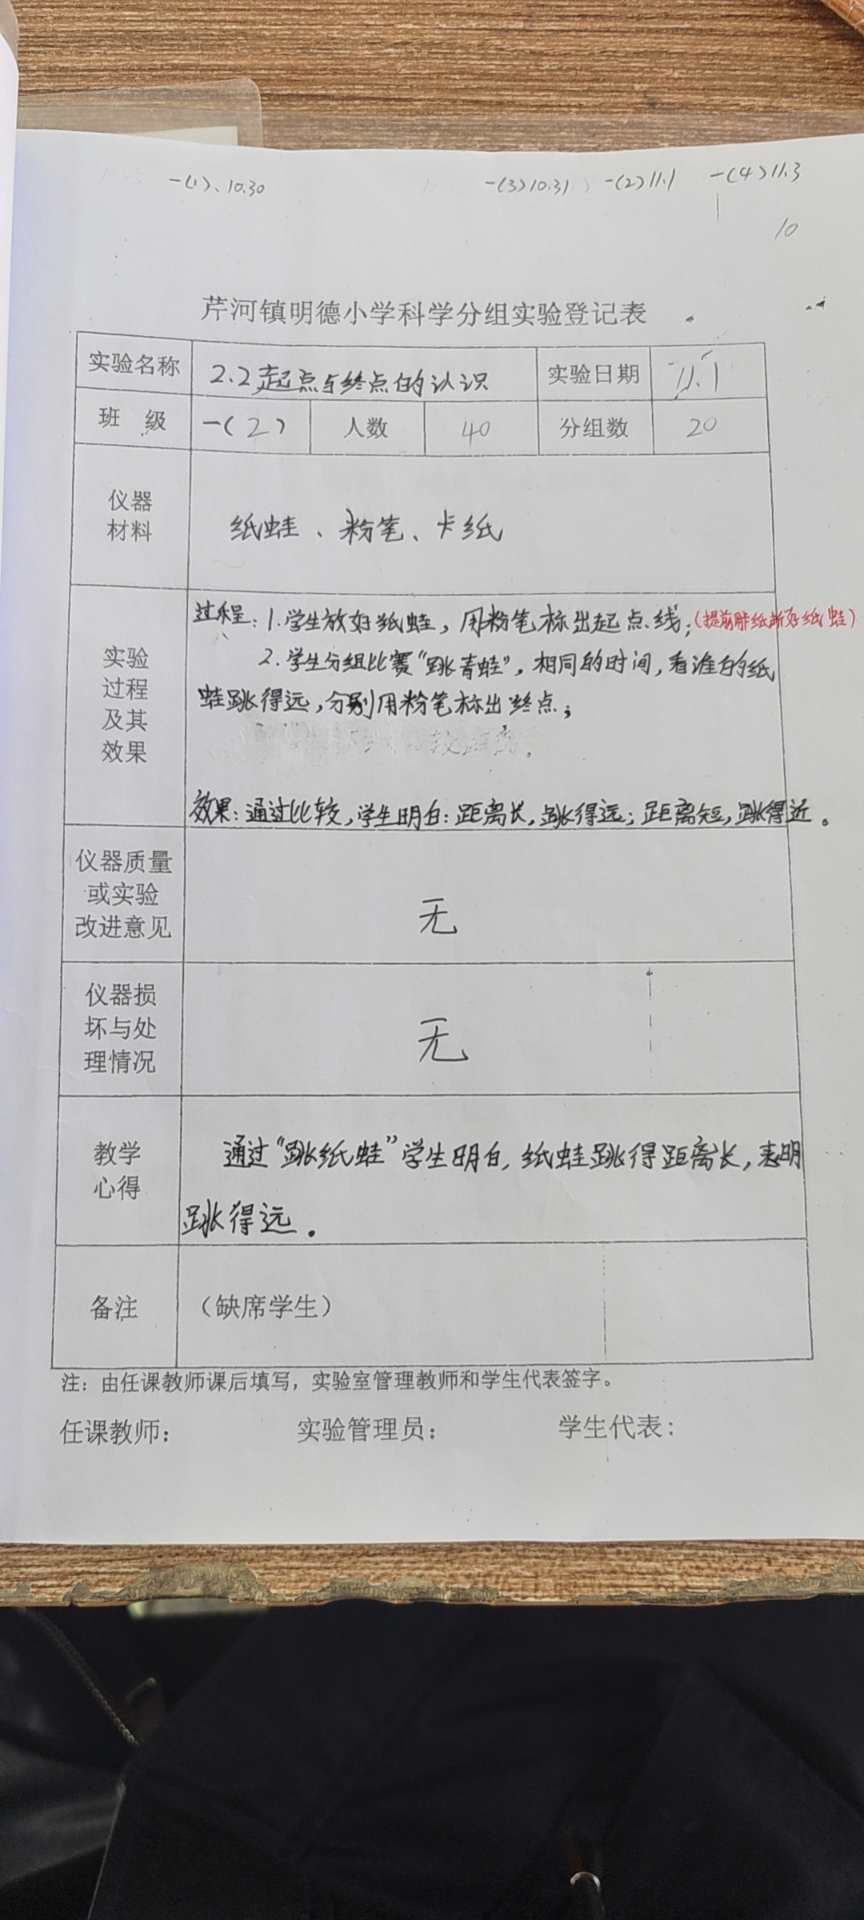 一(1)、10.30 一(3)10.31 一(2)11.1 一(4)11.3
10
芹河镇明德小学科学分组实验登记表
实验名称 2.2起点与终点的认识 实验日期 11.1
班 级 一(2) 人数 40 分组数 20
仪器
材料
纸蛙、粉笔、卡纸
实验
过程
及其
效果
过程:1.学生放好纸蛙,用粉笔标出起点线;(提前用纸折好纸蛙)
2.学生分组比赛“跳青蛙”,相同的时间,看谁的纸
蛙跳得远,分别用粉笔标出终点;
效果:通过比较,学生明白:距离长,跳得远;距离短,跳得近。
仪器质量
或实验
改进意见
无
仪器损
坏与处
理情况
无
教学
心得
通过“跳纸蛙”学生明白,纸蛙跳得距离长,表明
跳得远。
备注 (缺席学生)
注:由任课教师课后填写,实验室管理教师和学生代表签字。
任课教师: 实验管理员: 学生代表: